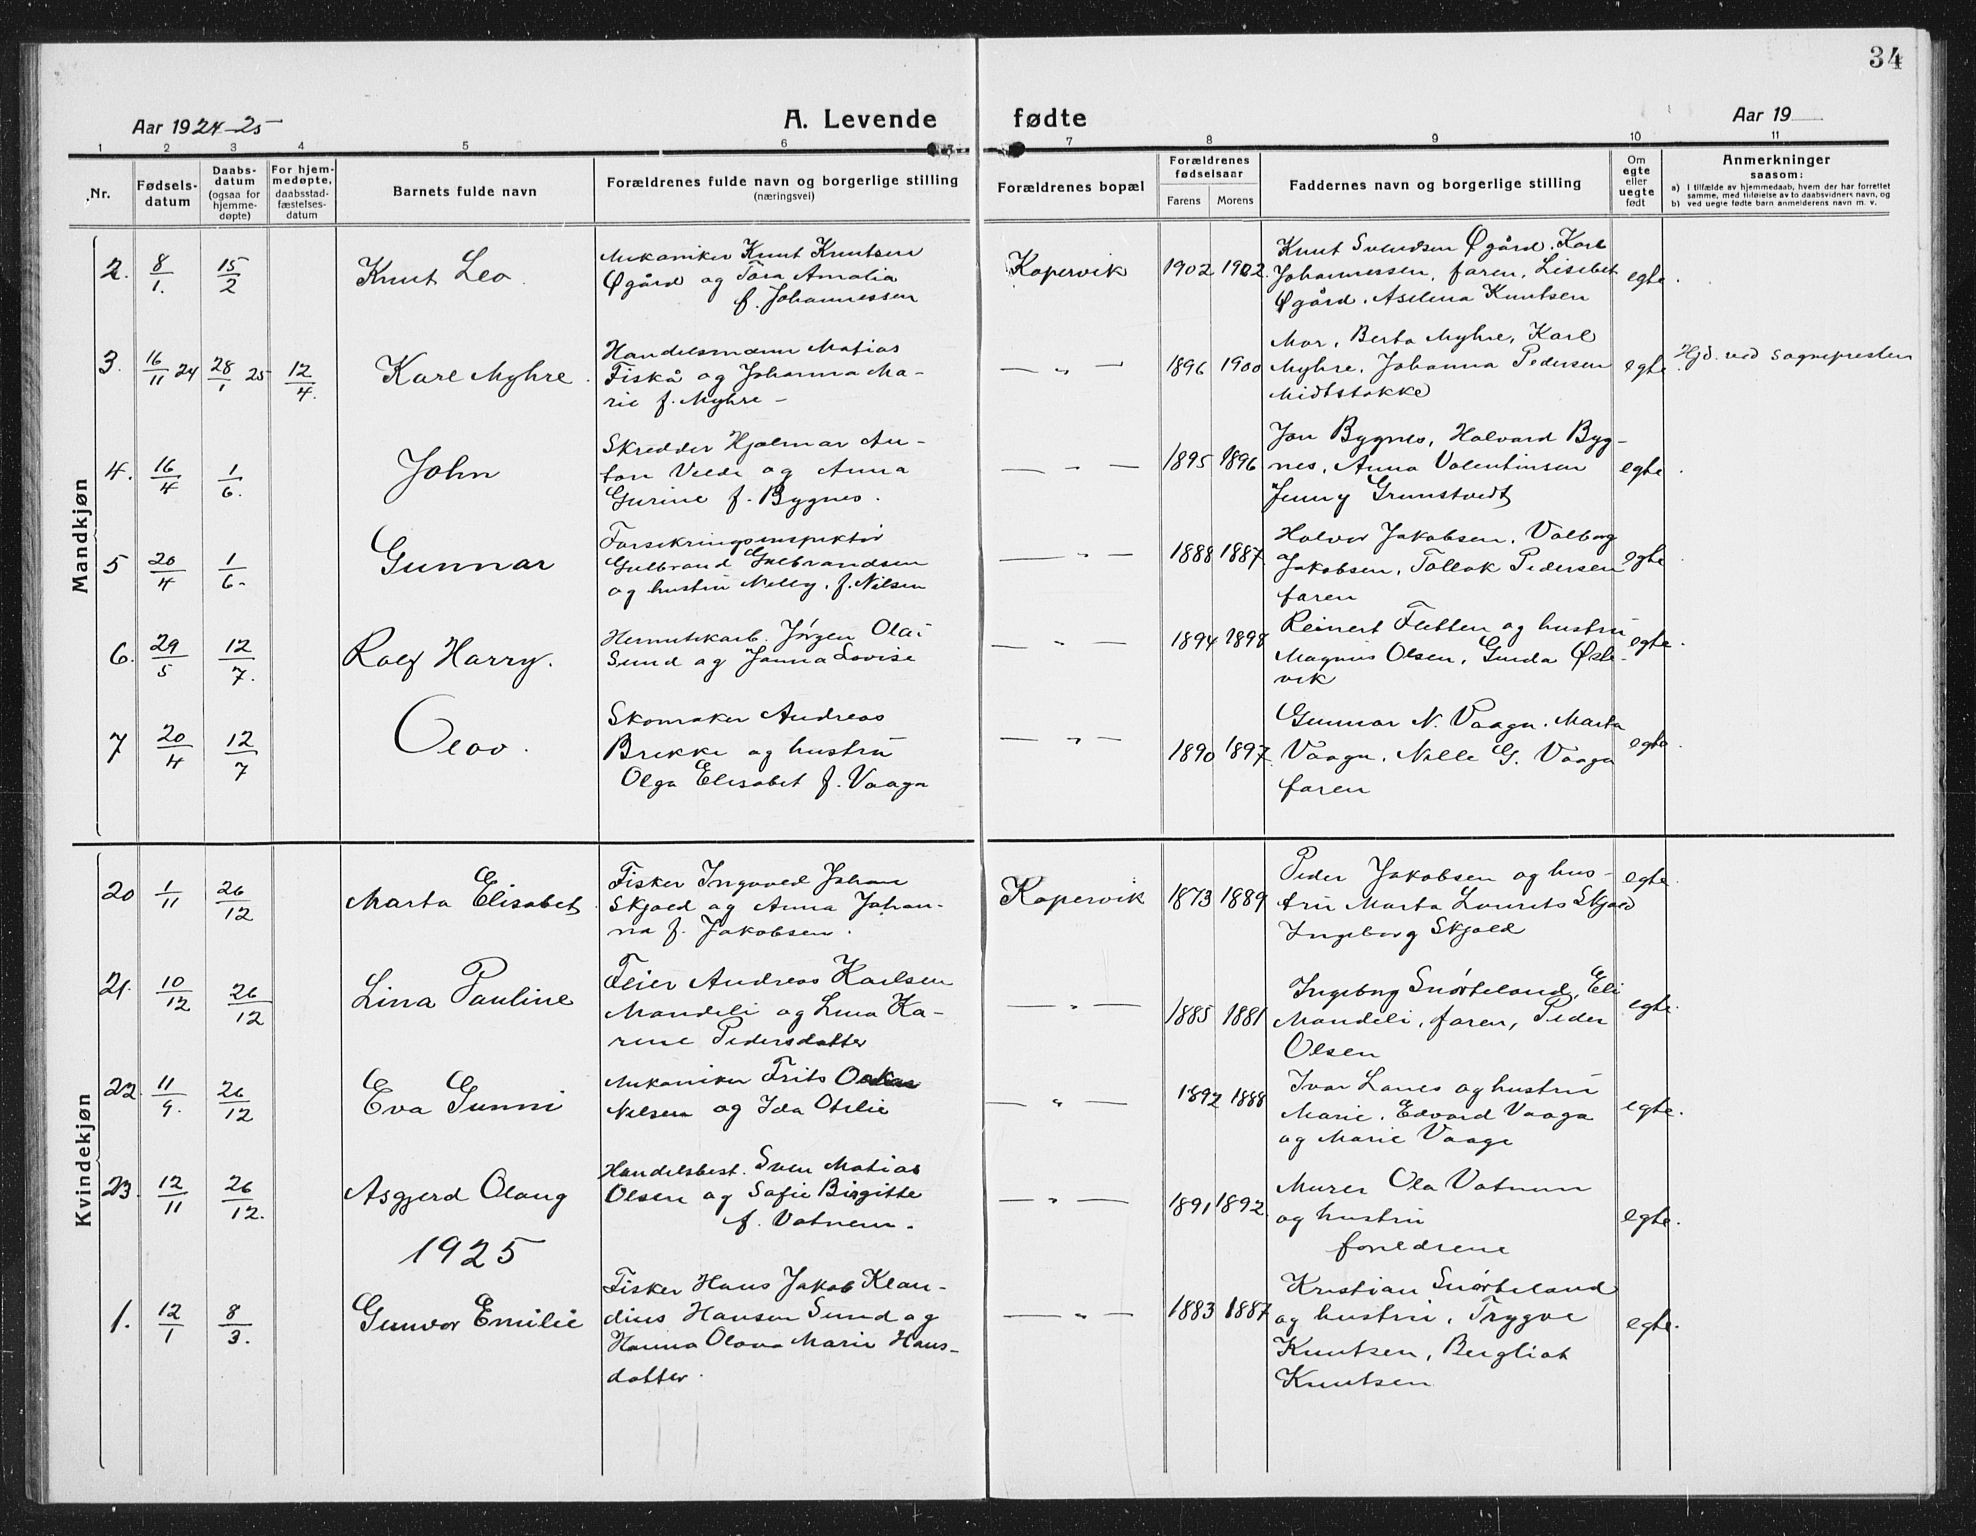 34
Aar 1924-25
A. Levende fødte
Aar 19
1 2 3 4 5 6 7 8 9 10 11
Nr.
Fødsels-
datum
Daabs-
datum
(ogsaa for
hjemme-
døpte)
For hjem-
medøpte,
daabsstad-
fæstelses-
datum
Barnets fulde navn
Forældrenes fulde navn og borgerlige stilling
(næringsvei)
Forældrenes bopæl
Forældrenes
fødselsaar
Farens Morens
Faddernes navn og borgerlige stilling
Om
egte
eller
uegte
født
Anmerkninger
saasom:
a) I tilfælde av hjemmedaab, hvem der har forrettet
samme, med tilføielse av to daabsvidners navn, og
b) ved uegte fødte barn anmelderens navn m. v.
Mandkjøn
2. 8/1. 15/2 Knut Leo.
Mekaniker Knut Knutsen
Øgård og Tora Amalia
f. Johannessen
Kopervik 1902 1902
Knut Svendsen Øgård. Karl
Johannessen, faren, Lisebet
Øgård. Aselena Knutsen
egte.
3. 16/11 24 28/1 25 12/4. Karl Myhre.
Handelsmann Matias
Fiskå og Johanna Ma-
rie f. Myhre –
— „ — 1896 1900
Mor, Berta Myhre, Karl
Myhre. Johanna Pedersen
Midtstokke
egte.
Hjd. ved sognepresten
4. 16/4 1/6. John
Skredder Hjalmar An-
ton Velde og Anna
Gurine f. Bygnes.
— „ — 1895 1896
Jon Bygnes, Halvard Byg-
nes, Anna Valentinsen
Jenny Grunstvedt
egte.
5 20/4 1/6. Gunnar
Forsikringsinspektør
Gulbrand Gulbrandsen
og hustru Nelly, f. Nilsen
— „ — 1888 1887.
Halvor Jakobsen, Valborg
Jakobsen, Tollak Pedersen
faren
egte
6. 29/5 12/7. Rolf Harry.
Hermetikarb. Jørgen Olai
Sund og Janna Lovise
— „ — 1894 1898
Reinert Fletten og hustru
Magnus Olsen, Gurda Øste-
vik
egte.
7 20/4 12/7 Olav.
Skomaker Andreas
Brekke og hustru
Olga Elisabet f. Vaaga
— „ — 1890 1897.
Gunnar N. Vaaga. Marta
Vaaga. Nelle G. Vaaga
faren
egte.
Kvindekjøn
20 1/11 26/12 Marta Elisabet.
Fisker Ingvald Johan
Skjold og Anna Johan-
na f. Jakobsen.
Kopervik 1873 1889
Peder Jakobsen og hus-
tru Marta Lourits Skjold
Ingeborg Skjold
egte.
21. 10/12 26/12 Lina Pauline
Feier Andreas Karlsen
Mandeli og Lina Ka-
rine Pedersdatter
— „ — 1885 1881
Ingeborg Snørteland, Eli
Mandeli, faren, Peder
Olsen
egte.
22. 11/9. 26/12 Eva Gunni
Mekaniker Frits Oskar
Nilsen og Ida Otelie
— „ — 1892 1888
Ivar Lanes og hustru
Marie. Edvard Vaaga
og Marie Vaage
egte.
23. 12/11 26/12. Asgjerd Olaug
Handelsbest. Sven Matias
Olsen og Sofie Birgitte
f. Vatnem.
— „ — 1891 1892.
Murer Ola Vatnem
og hustru
foreldrene
egte.
1925
1. 12/1 8/3. Gunvor Emilie
Fisker Hans Jakob Klau-
dius Hansen Sund og
Hanna Olava Marie Hans-
datter.
— „ — 1883 1887
Kristian Snørteland
og hustru, Trygve
Knutsen, Bergliot
Knutsen
egte.